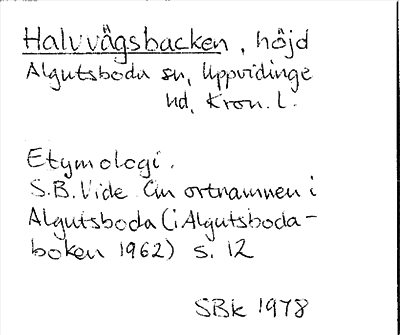 Halvvägsbacken, höjd
Algutsboda sn, Uppvidinge
hd, Kron. L.
Etymologi.
S.B. Vide Om ortnamnen i
Algutsboda (i Algutsboda-
boken 1962) s. 12
SBk 1978